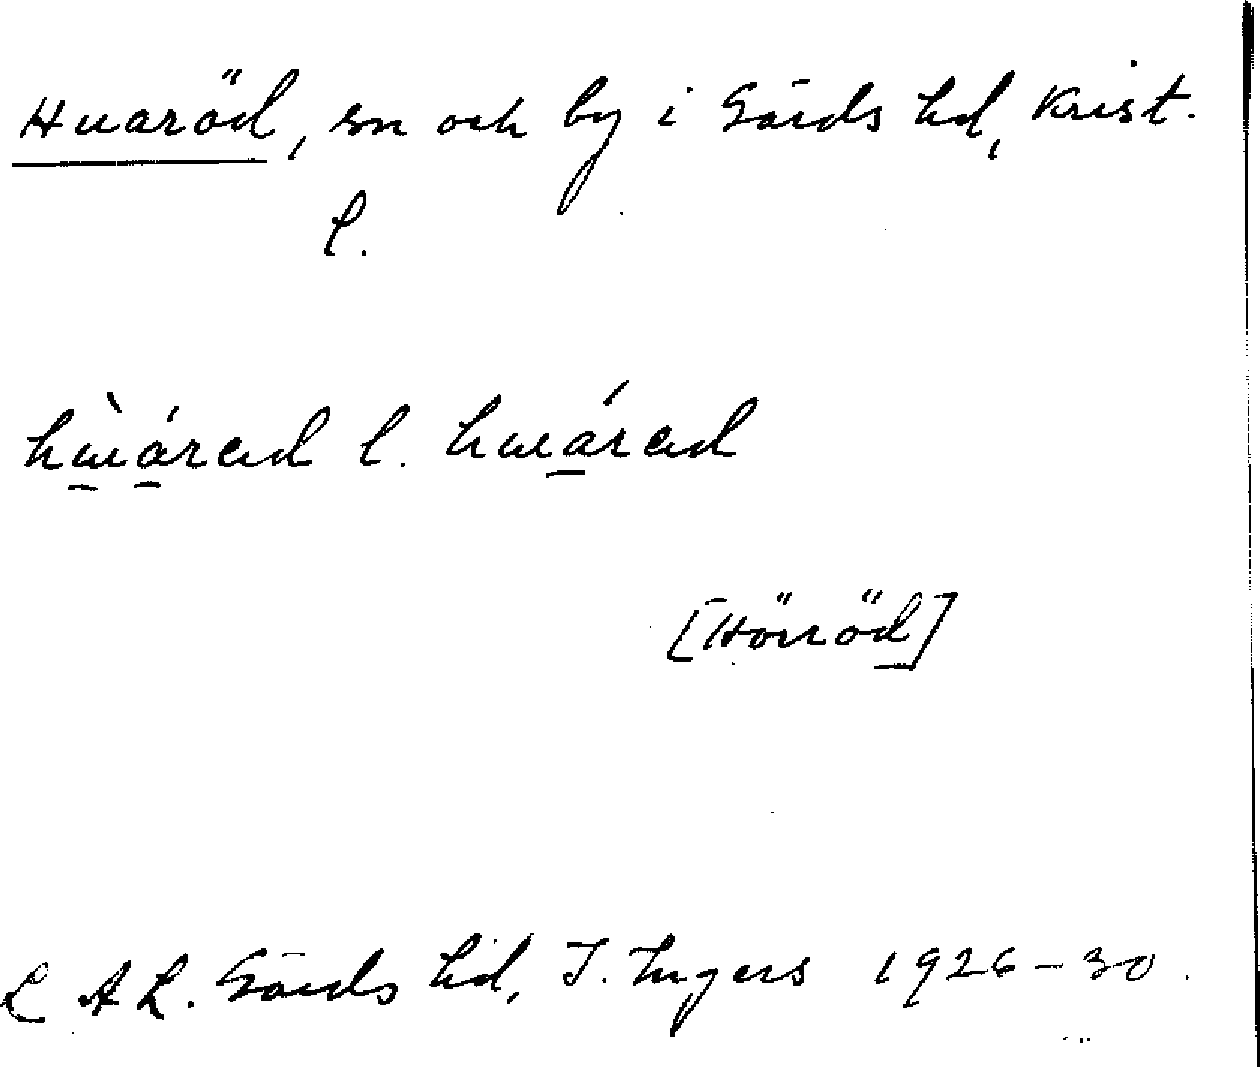 Huaröd, sn och by i Gärds hd, Krist.
l.
hẁáred l. hwáred
[Hörröd]
L A L. Gärds hd, I. Ingers 1926-30.